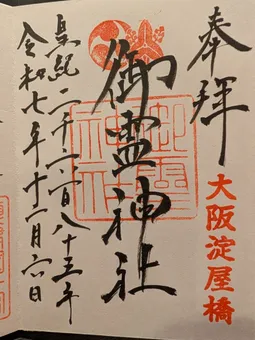 奉拝
大阪淀屋橋
御霊神社
皇紀二千六百八十五年
令和七年十一月六日